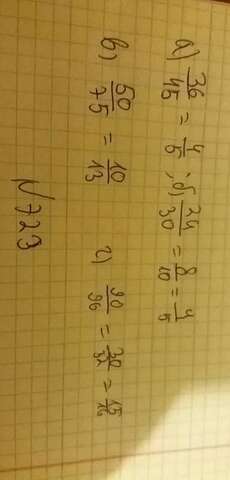 а) 36/45 = 4/5; б) 24/30 = 8/10 = 4/5
в) 50/75 = 10/13 г) 90/96 = 30/32 = 15/16
№723